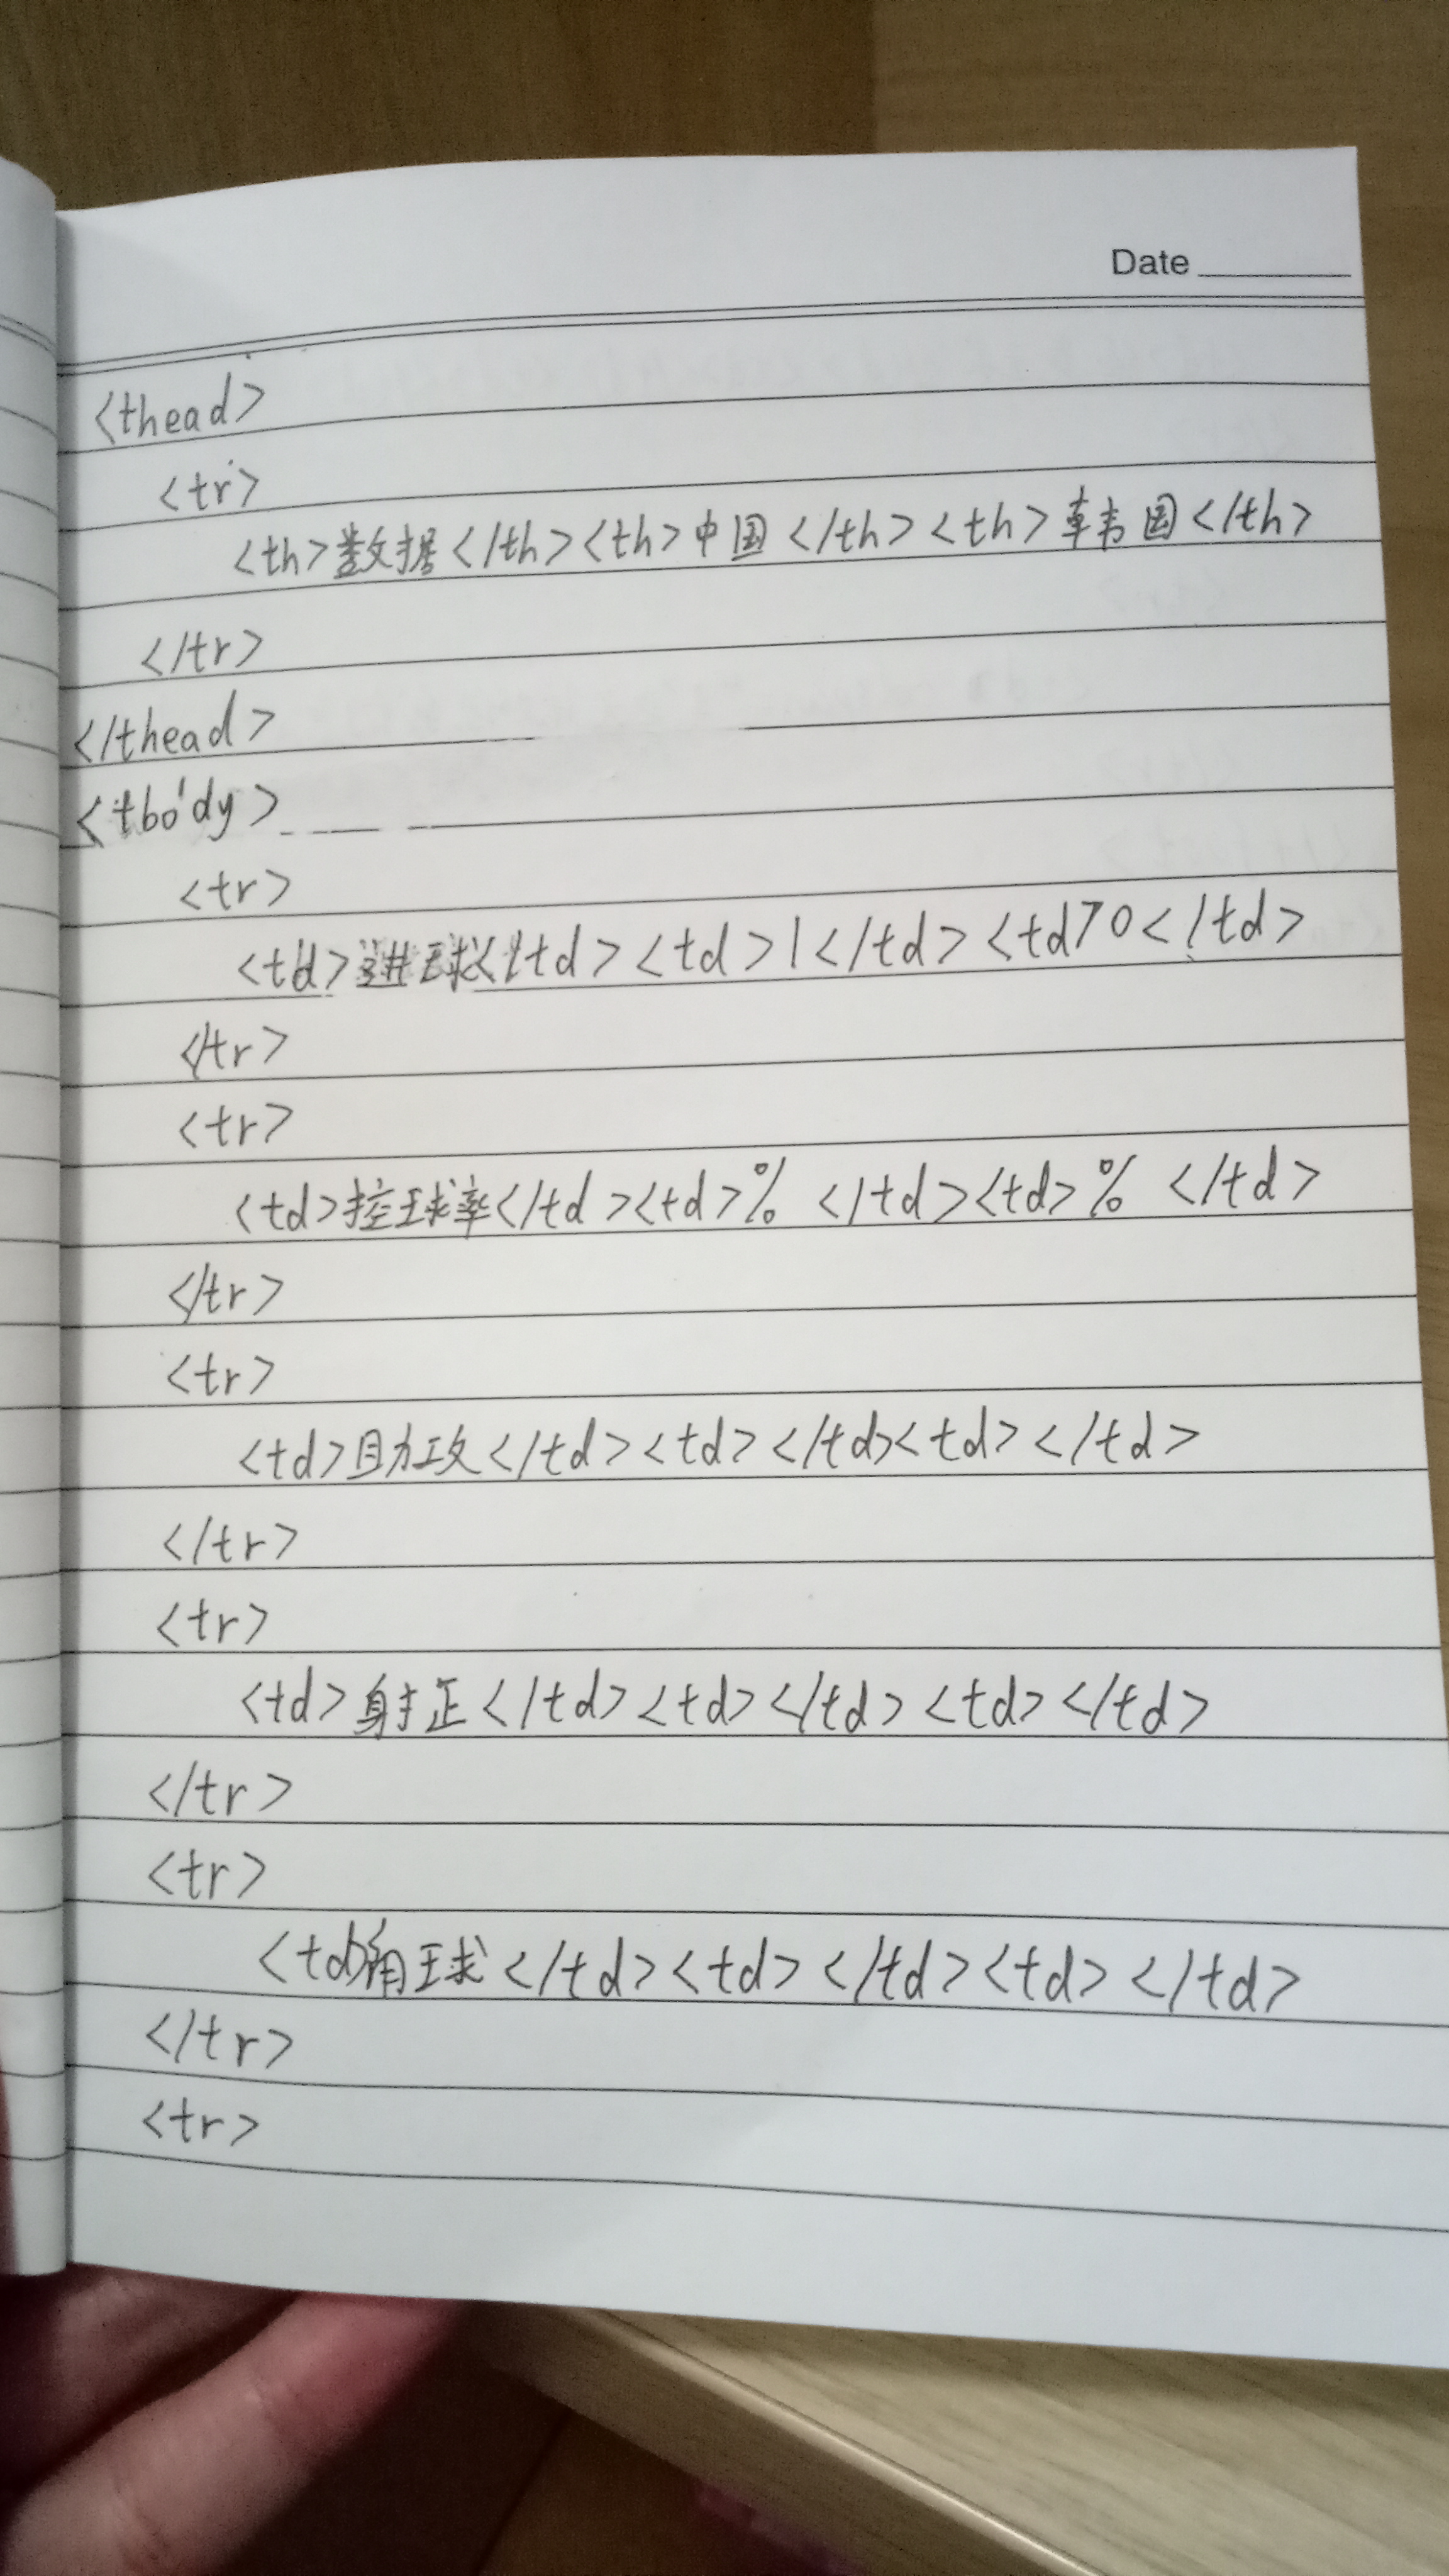 Date
<thead>
<tr>
<th>数据</th><th>中国</th><th>韩国</th>
</tr>
</thead>
<tbody>
<tr>
<td>进球</td><td>1</td><td>0</td>
</tr>
<tr>
<td>控球率</td><td>%</td><td>%</td>
</tr>
<tr>
<td>助攻</td><td></td><td></td>
</tr>
<tr>
<td>射正</td><td></td><td></td>
</tr>
<tr>
<td>角球</td><td></td><td></td>
</tr>
<tr>